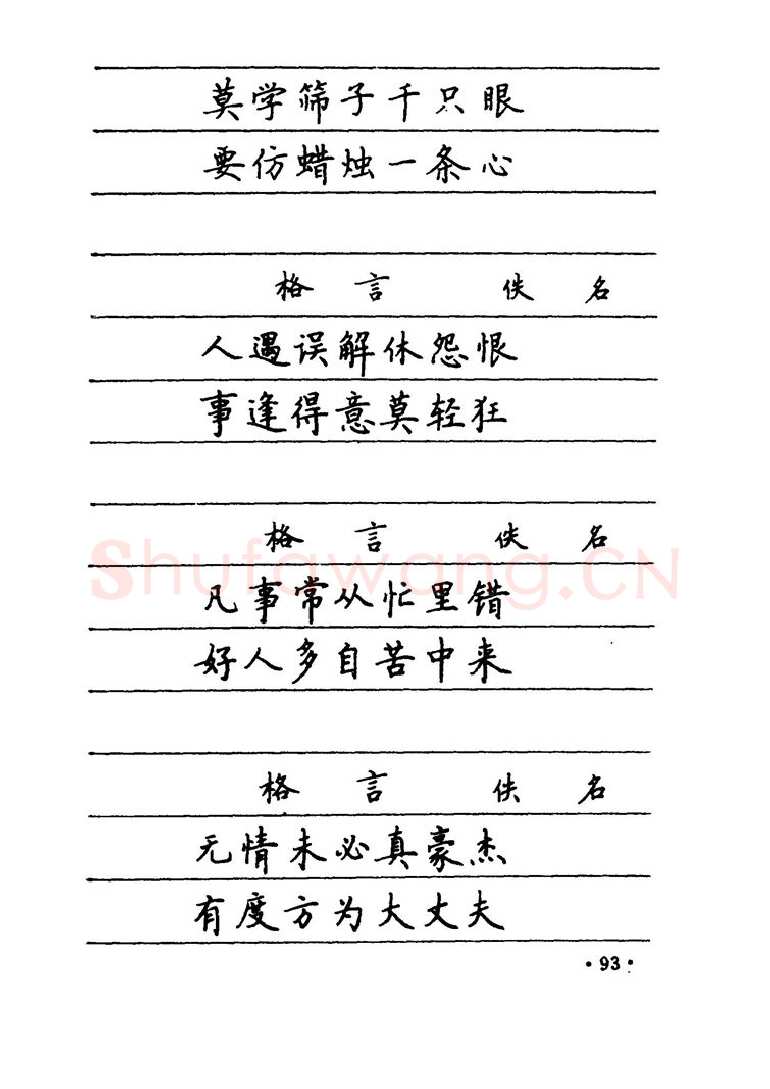 莫学筛子千只眼
要仿蜡烛一条心
格言 佚名
人遇误解休怨恨
事逢得意莫轻狂
格言 佚名
Shufawang.CN
凡事常从忙里错
好人多自苦中来
格言 佚名
无情未必真豪杰
有度方为大丈夫
·93·